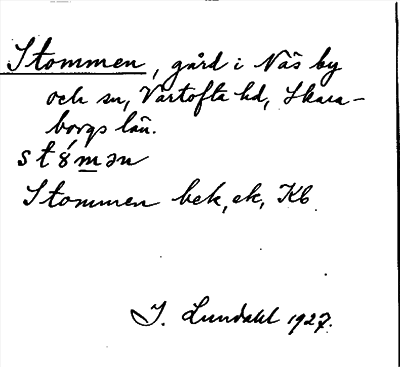 Stommen, gård i Näs by
och sn, Vartofta hd, Skara-
borgs län.
stȣ́mən
Stommen bek, ek, Kb
I. Lundahl 1927.